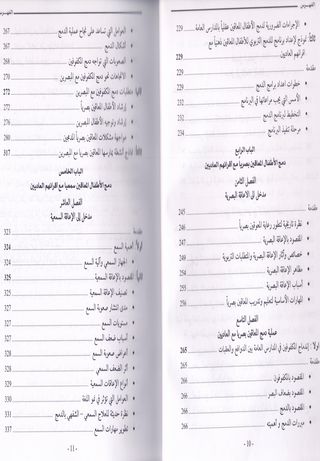 الفهـــرس
• الإجراءات الضرورية لدمج الأطفال المعاقين عقلياً بالمدارس العامة 229
ثالثاً: نموذج لإعداد برنامج للدمج التربوي للأطفال المعاقين ذهنياً مع
أقرانهم العاديين 229
مقدمة
• خطوات إعداد برامج الدمج 230
• الأسس التي يجب مراعاتها في البرنامج 231
• التخطيط لبرنامج الدمج 232
• مرحلة تنفيذ البرنامج 234
الباب الرابع
دمج الأطفال المعاقين بصرياً مع أقرانهم العاديين
الفصل الثامن
مدخل إلى الإعاقة البصرية
مقدمة 245
• نظرة تاريخية لتطور رعاية المعوقين بصرياً
• المقصود بالإعاقة البصرية
• خصائص وآثار الإعاقة البصرية والمتطلبات التربوية
• مظاهر الإعاقة البصرية
• أسباب الإعاقة البصرية
• المهارات الأساسية لتعليم وتدريب المعاقين بصرياً
الفصل التاسع
عملية دمج المعاقين بصرياً مع العاديين
أولاً: إندماج المكفوفين في المدارس العامة بين الدوافع والعقبات 265
مقدمة
• المقصود بالمكفوفين 266
• المقصود بضعاف البصر 266
• المقصود بالدمج 266
• مبررات الدمج وأهميته 266
- 10 -
الفهـــرس
• العوامل التي تساعد على نجاح عملية الدمج 267
• أشكال الدمج 267
• الصعوبات التي تواجه دمج المكفوفين 268
• الاتجاهات نحو دمج المكفوفين مع المبصرين 270
ثانياً: متطلبات دمج المكفوفين مع المبصرين 272
• إرشاد الأطفال المعاقين بصرياً 272
• إرشاد وتوجيه الأطفال المبصرين 276
• مواجهة مشكلات المعاقين بصرياً المدمجين 280
ثالثاً: نماذج أنشطة يمارسها المعاقين بصرياً مع المبصرين 307
الباب الخامس
دمج الأطفال المعاقين سمعياً مع أقرانهم العاديين
الفصل العاشر
مدخل إلى الإعاقة السمعية
مقدمة 323
أولاً: أهمية السمع 324
• الجهاز السمعي وآلية السمع 324
ثانياً: المقصود بالإعاقة السمعية 325
• تصنيف الإعاقة السمعية 325
• مدى انتشار صعوبة السمع 327
• مستويات السمع 327
• أسباب ضعف السمع 327
• أعراض صعوبة السمع 328
• أثر الضعف السمعي 328
• أنواع الإعاقات السمعية 329
• العوامل التي تؤثر في نمو اللغة 330
• نظرة حديثة للعلاج السمعي – الشفهي بالدمج 331
• تطوير مهارات السمع 337
- 11 -